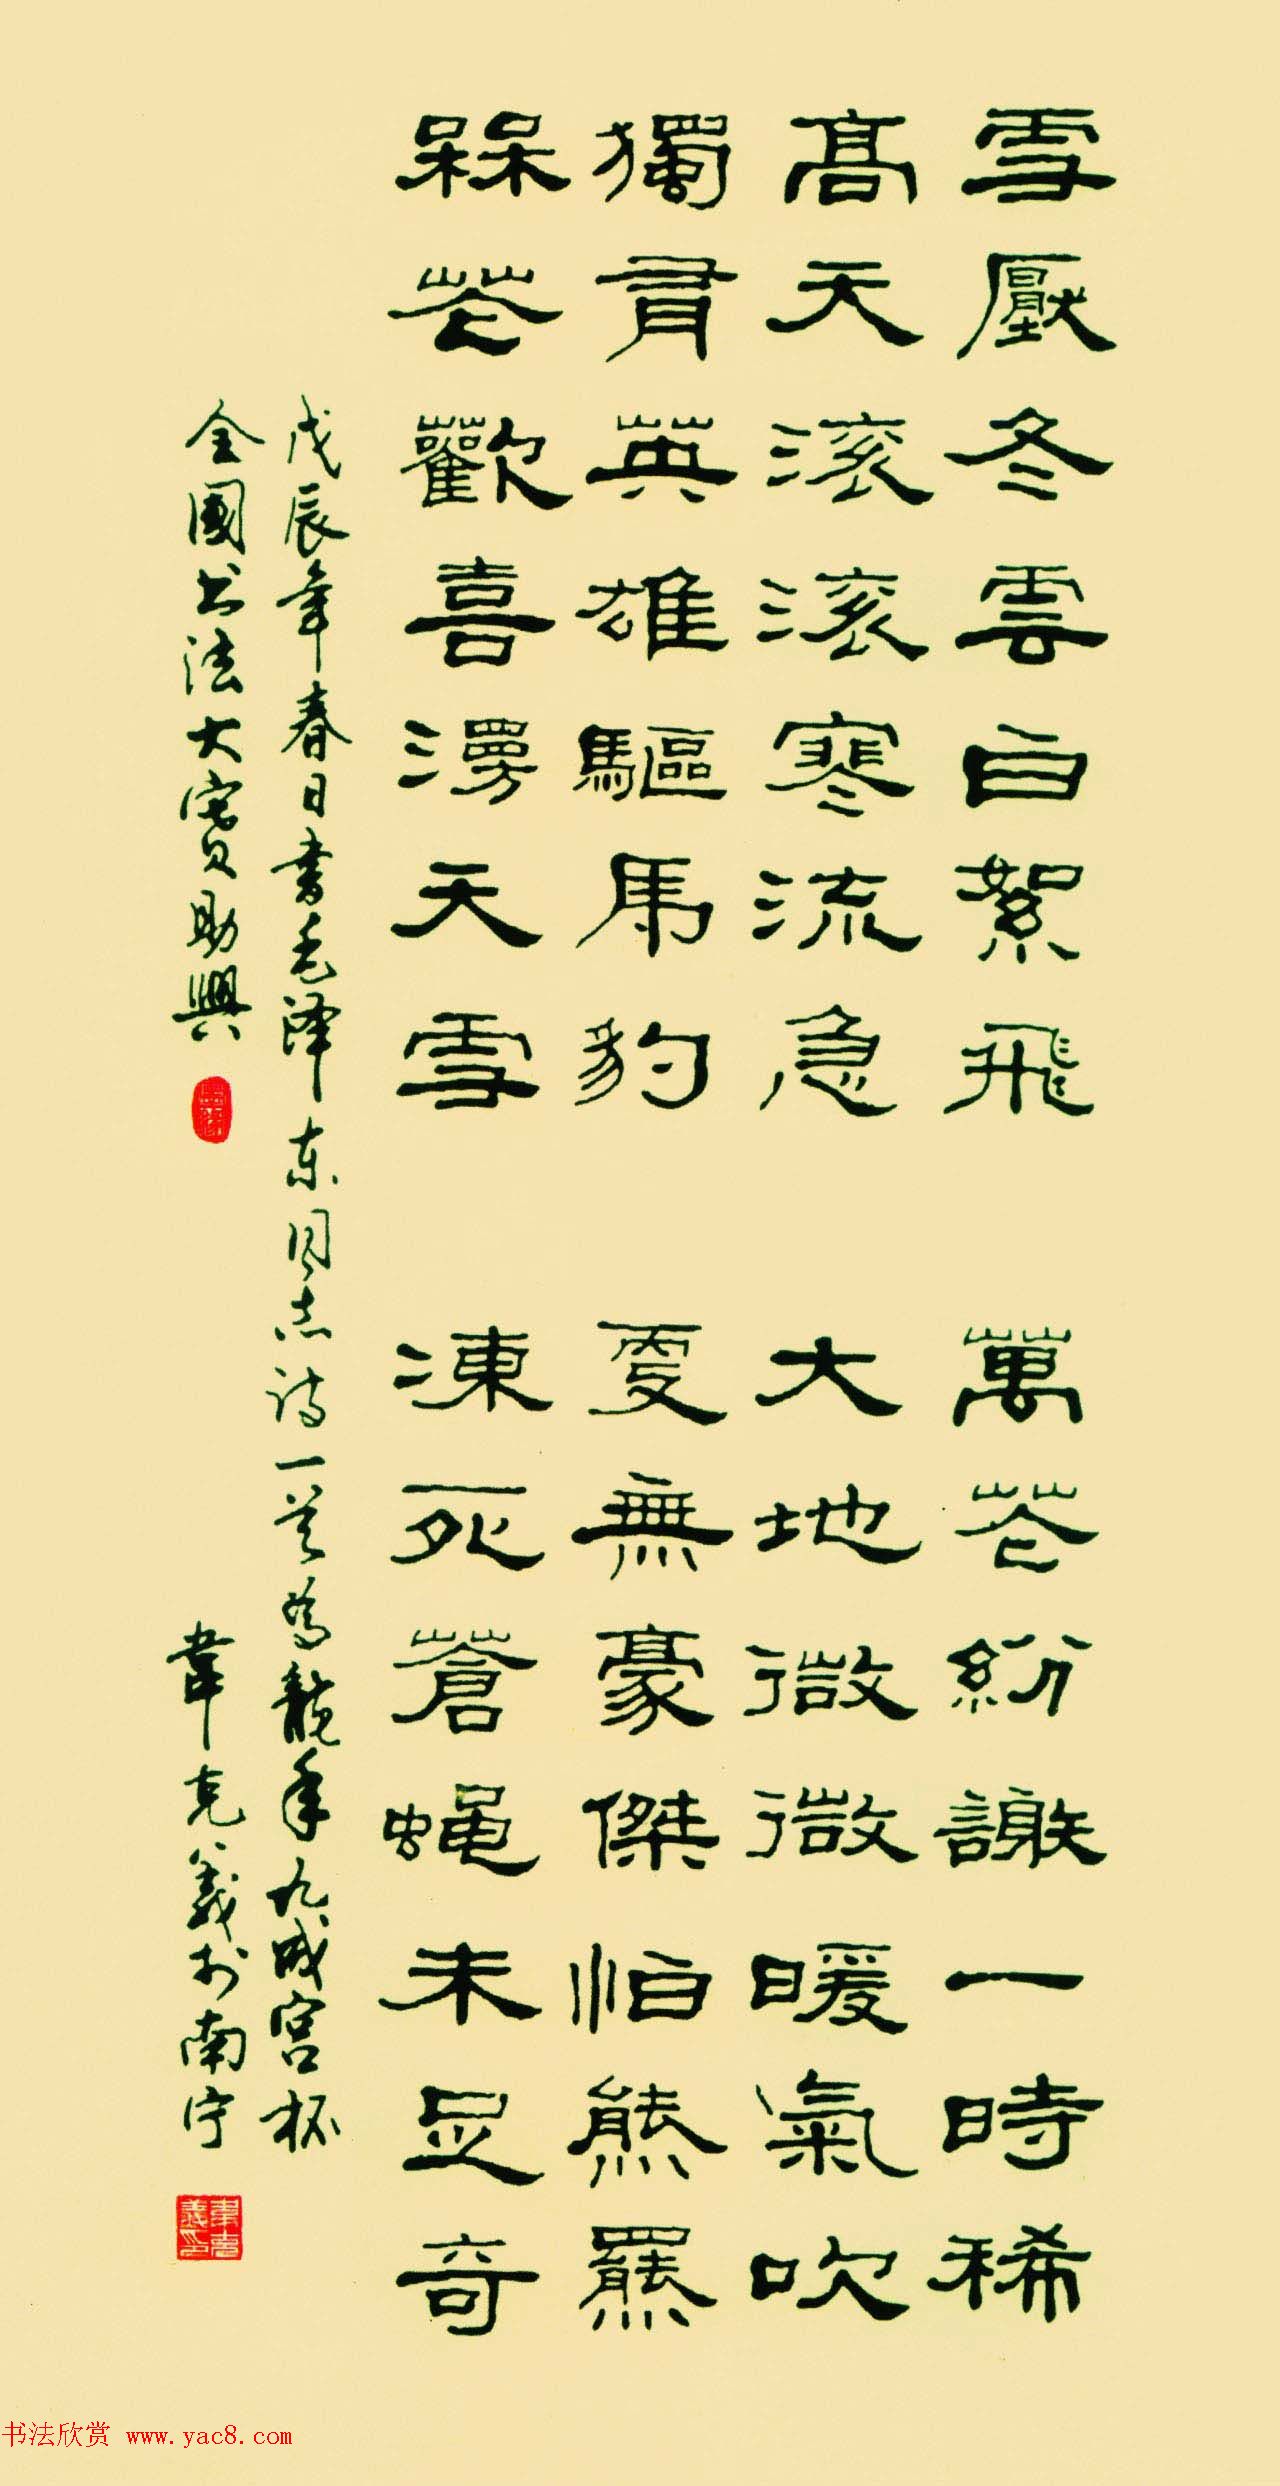 雪壓冬雲白絮飛 萬花紛謝一時稀
髙天滚滚寒流急 大地微微暖氣吹
獨有英雄驅虎豹 更無豪傑怕熊羆
槑花歡喜漫天雪 凍死蒼蝇未足奇
戊辰年春日書毛泽东同志诗一首为龍年九成宫杯
全國书法大賽助興 韋克義於南宁
韋克義印
书法欣赏 www.yac8.com